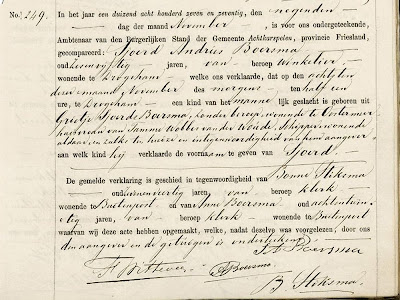 No. 249.
In het jaar een duizend acht honderd zeven en zeventig, den negenden
dag der maand November, is voor ons ondergeteekende,
Ambtenaar van den Burgerlijken Stand der Gemeente Achtkarspelen, provincie Friesland,
gecompareerd: Sjoerd Andries Boersma
oud zesenvijftig jaren, van beroep winkelier
wonende te Droogeham welke ons verklaarde, dat op den achtsten
dezer maand November des morgens ten half een
ure, te Droogeham een kind van het mannelijk geslacht is geboren uit
Grietje Sjoerds Boersma, zonder beroep, wonende te Oostermeer
huisvrouw van Samme Wobbes van der Woude, schipper, wonende
aldaar, en zulks te huize en in tegenwoordigheid van hem aangever
aan welk kind hij verklaarde de voornaam te geven van Sjoerd
De gemelde verklaring is geschied in tegenwoordigheid van Bonne Stiksma
oud jaren, van beroep klerk
wonende te Buitenpost en van Anne Boersma oud achtentwin-
tig jaren, van beroep klerk wonende te Buitenpost
waarvan wij deze acte hebben opgemaakt, welke, nadat dezelve was voorgelezen, door ons
den aangever en de getuigen is onderteekend.
S A Boersma
A Boersma
B Stiksma